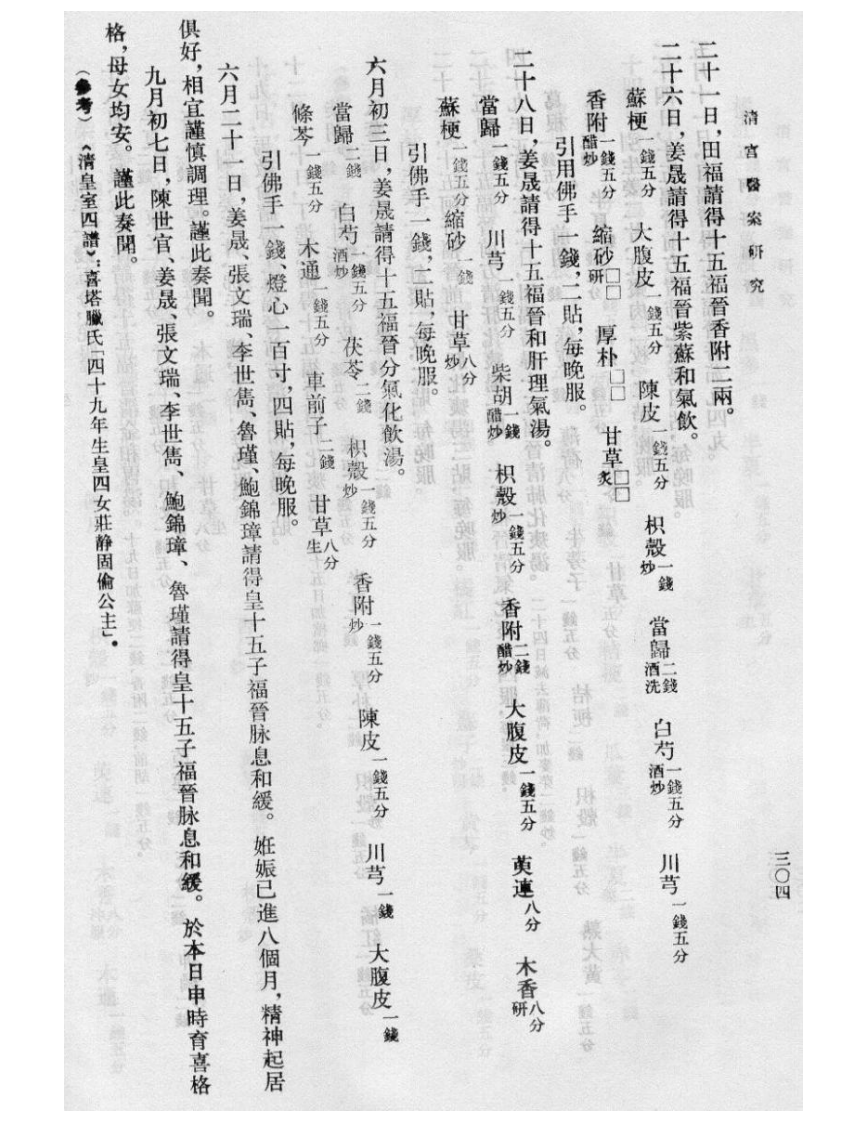 清宮醫案研究
三〇四
二十一日，田福請得十五福晉香附二兩。
二十六日，姜晟請得十五福晉紫蘇和氣飲。
蘇梗一錢五分 大腹皮一錢五分 陳皮一錢五分 枳殼炒一錢 當歸酒洗二錢 白芍酒炒一錢五分 川芎一錢五分
香附醋炒一錢五分 縮砂研□□ 厚朴□□ 甘草炙□□
引用佛手一錢，二貼，每晚服。
二十八日，姜晟請得十五福晉和肝理氣湯。
當歸一錢五分 川芎一錢五分 柴胡醋炒一錢 枳殼炒一錢五分 香附醋炒二錢 大腹皮一錢五分 萸連八分 木香研八分
蘇梗一錢五分 縮砂一錢 甘草炒八分
引佛手一錢，二貼，每晚服。
六月初三日，姜晟請得十五福晉分氣化飲湯。
當歸二錢 白芍酒炒一錢五分 茯苓二錢 枳殼炒一錢五分 香附炒一錢五分 陳皮一錢五分 川芎一錢 大腹皮一錢
條芩一錢五分 木通一錢五分 車前子二錢 甘草生八分
引佛手一錢、燈心一百寸，四貼，每晚服。
六月二十一日，姜晟、張文瑞、李世雋、魯瑾、鮑錦璋請得皇十五子福晉脉息和緩。姙娠已進八個月，精神起居
俱好，相宜謹慎調理。謹此奏聞。
九月初七日，陳世官、姜晟、張文瑞、李世雋、鮑錦璋、魯瑾請得皇十五子福晉脉息和緩。於本日申時育喜格
格，母女均安。謹此奏聞。
（參考）《清皇室四譜》：喜塔臘氏「四十九年生皇四女莊静固倫公主」。